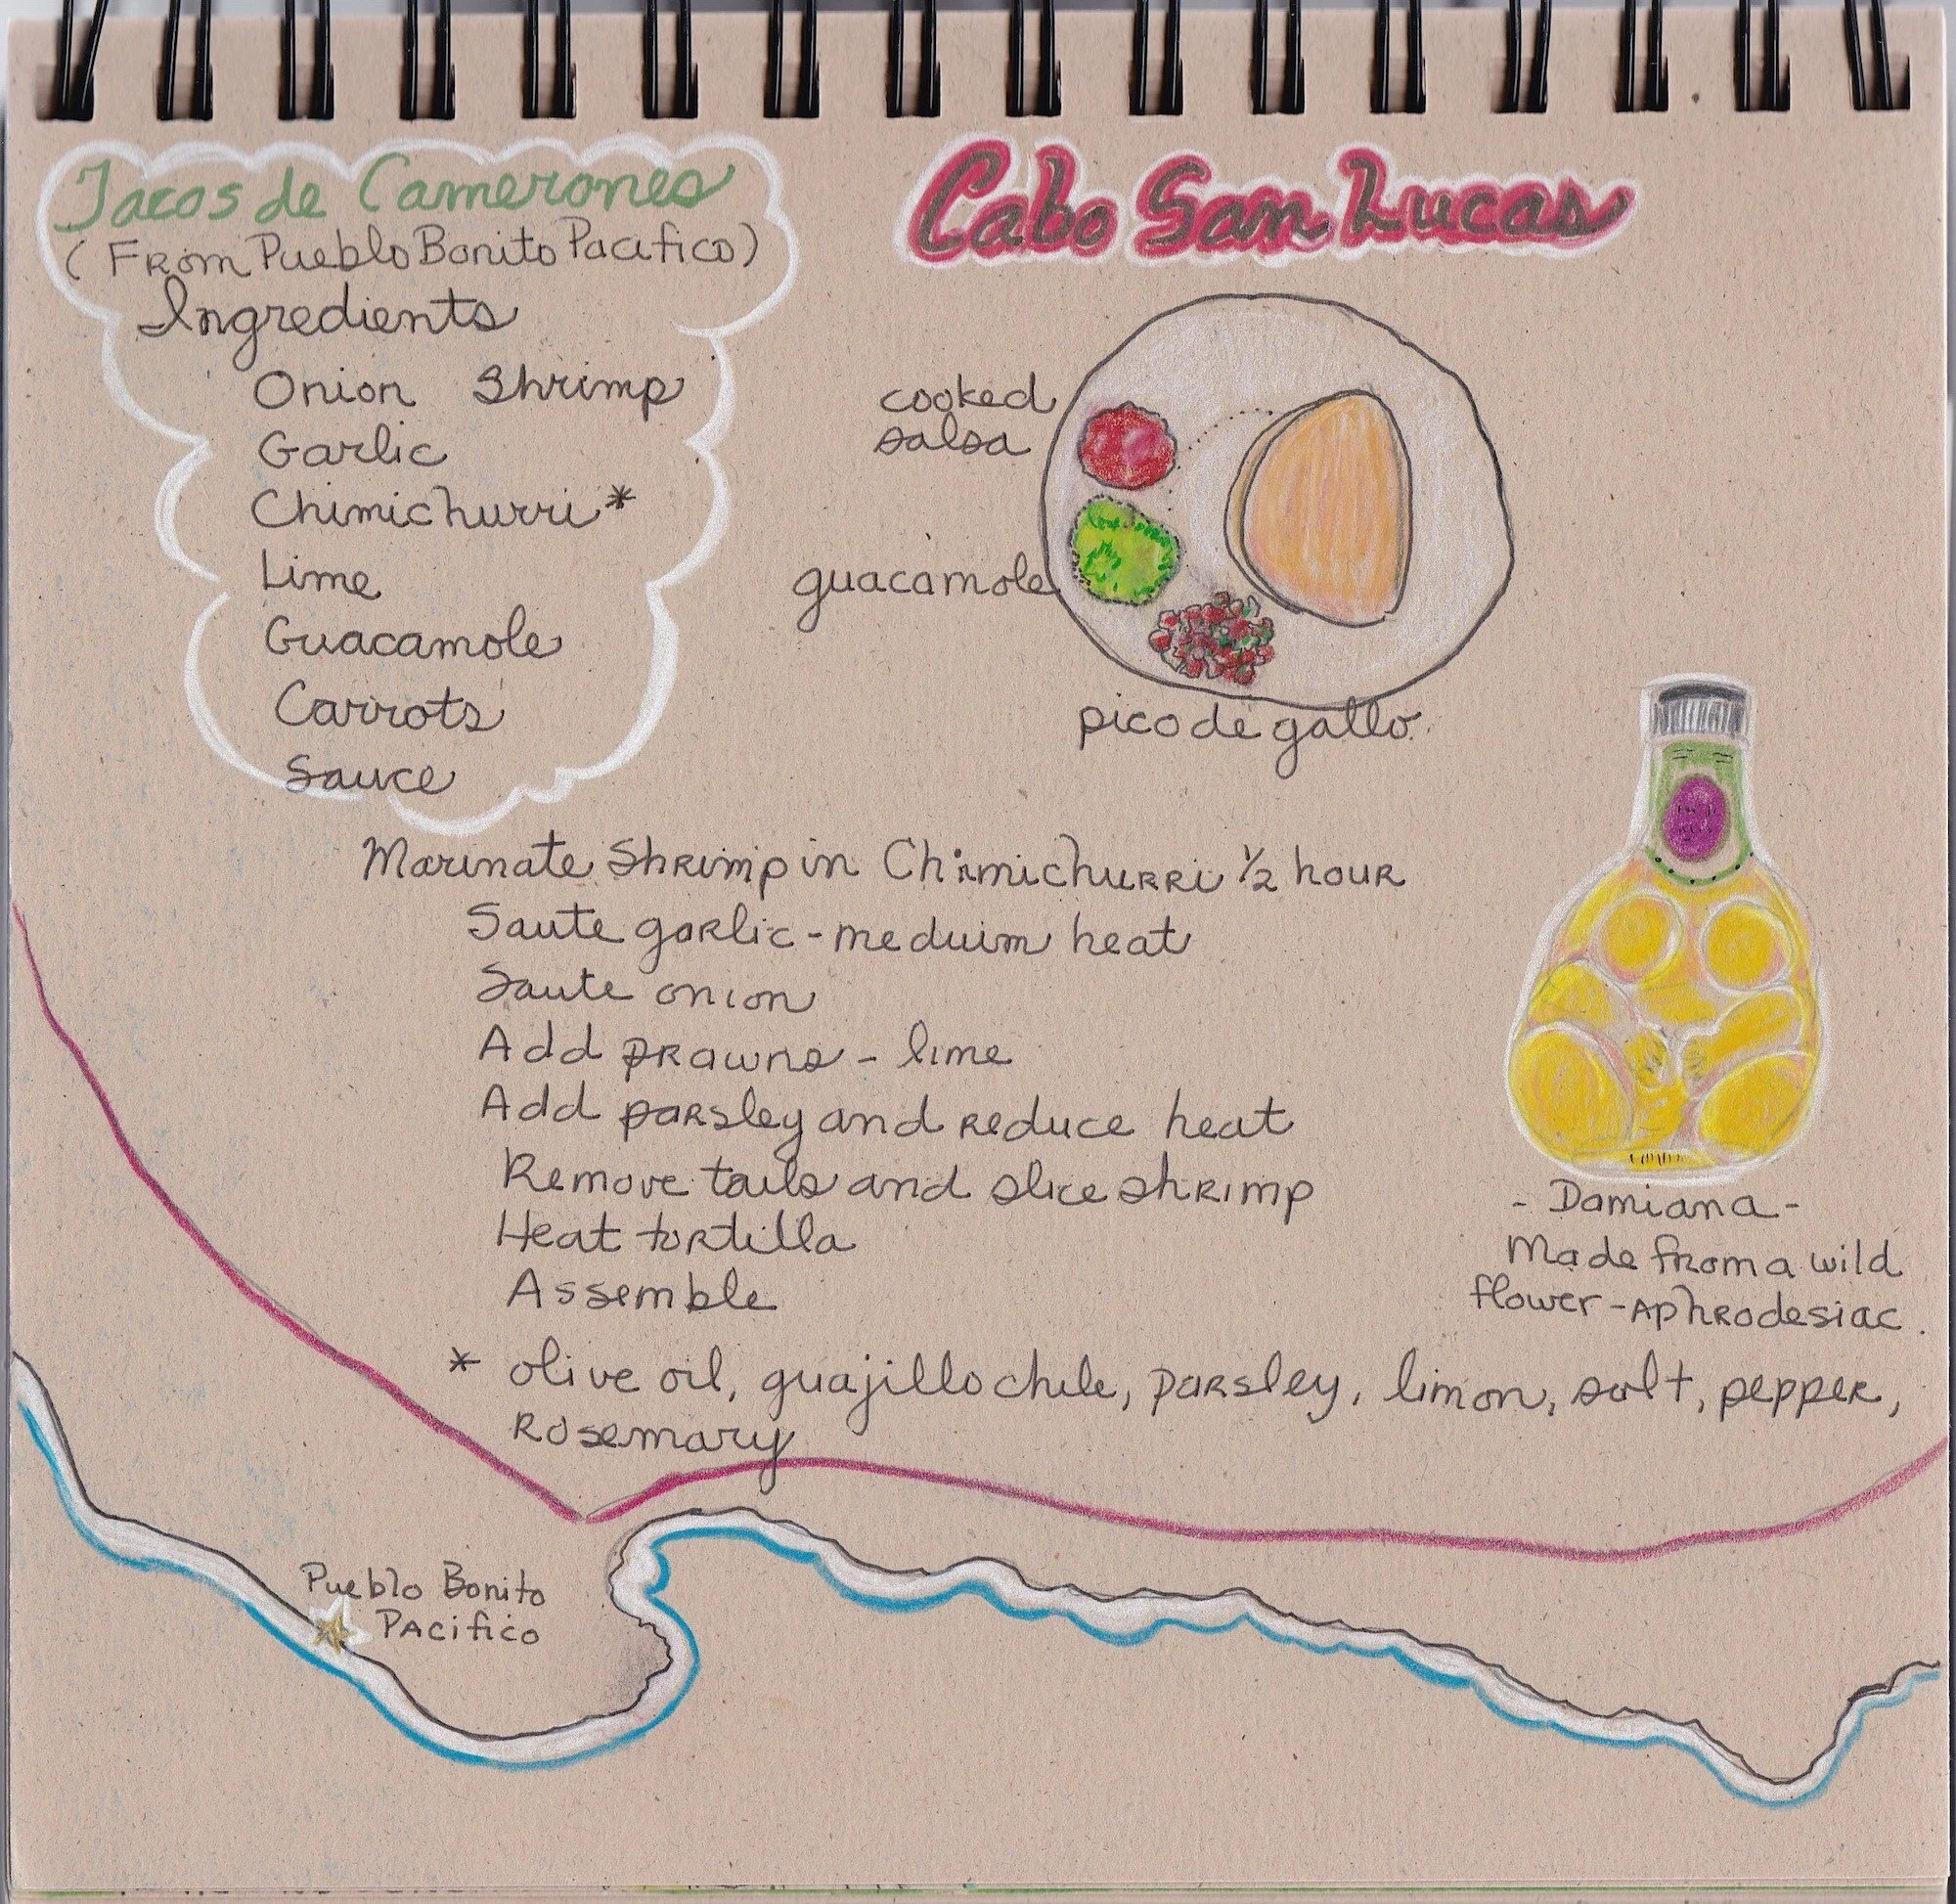 Tacos de Camerones
(From Pueblo Bonito Pacifico)
Ingredients
Onion Shrimp
Garlic
Chimichurri*
Lime
Guacamole
Carrots
Sauce
Cabo San Lucas
cooked
salsa
guacamole
pico de gallo
Marinate Shrimp in Chimichurri ½ hour
Saute garlic - meduim heat
Saute onion
Add prawns - lime
Add parsley and reduce heat
Remove tails and slice shrimp
Heat tortilla
Assemble
- Damiana -
Made from a wild
flower - Aphrodesiac.
* olive oil, guajillo chile, parsley, limon, salt, pepper,
Rosemary
Pueblo Bonito
Pacifico